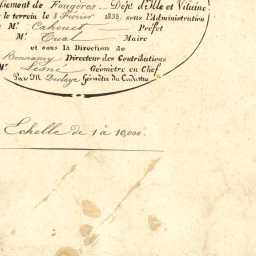 sement de Fougères ... Dépt d'Ille et Vilaine
le terrein le 8 Février 1835. sous l'Administration
de Mr. Préfet
Mr. Maire
et sous la Direction de
Directeur des Contributions
Mr. Géomètre en Chef
Par M. Géomètre du Cadastre
Echelle de 1 à 10,000.